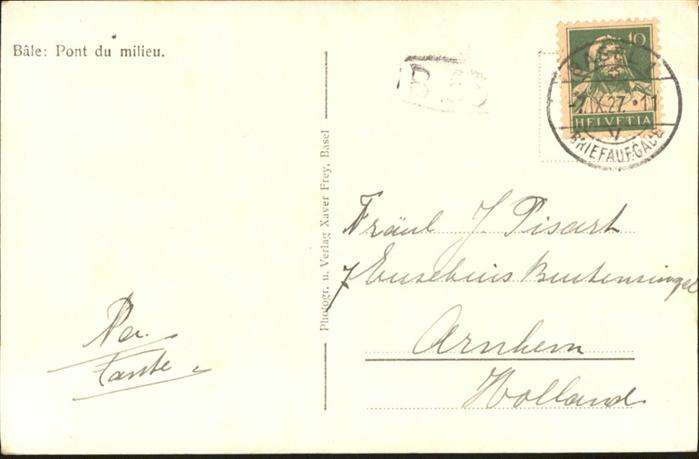 Bâle: Pont du milieu.
10
HELVETIA
BASEL 1
-7.IX.27.11
BRIEFAUFGABE
Photogr. u. Verlag Xaver Frey, Basel
Fräul J. Pisart
7 Eusebius Buitensingel
Arnhem
Holland
Tante